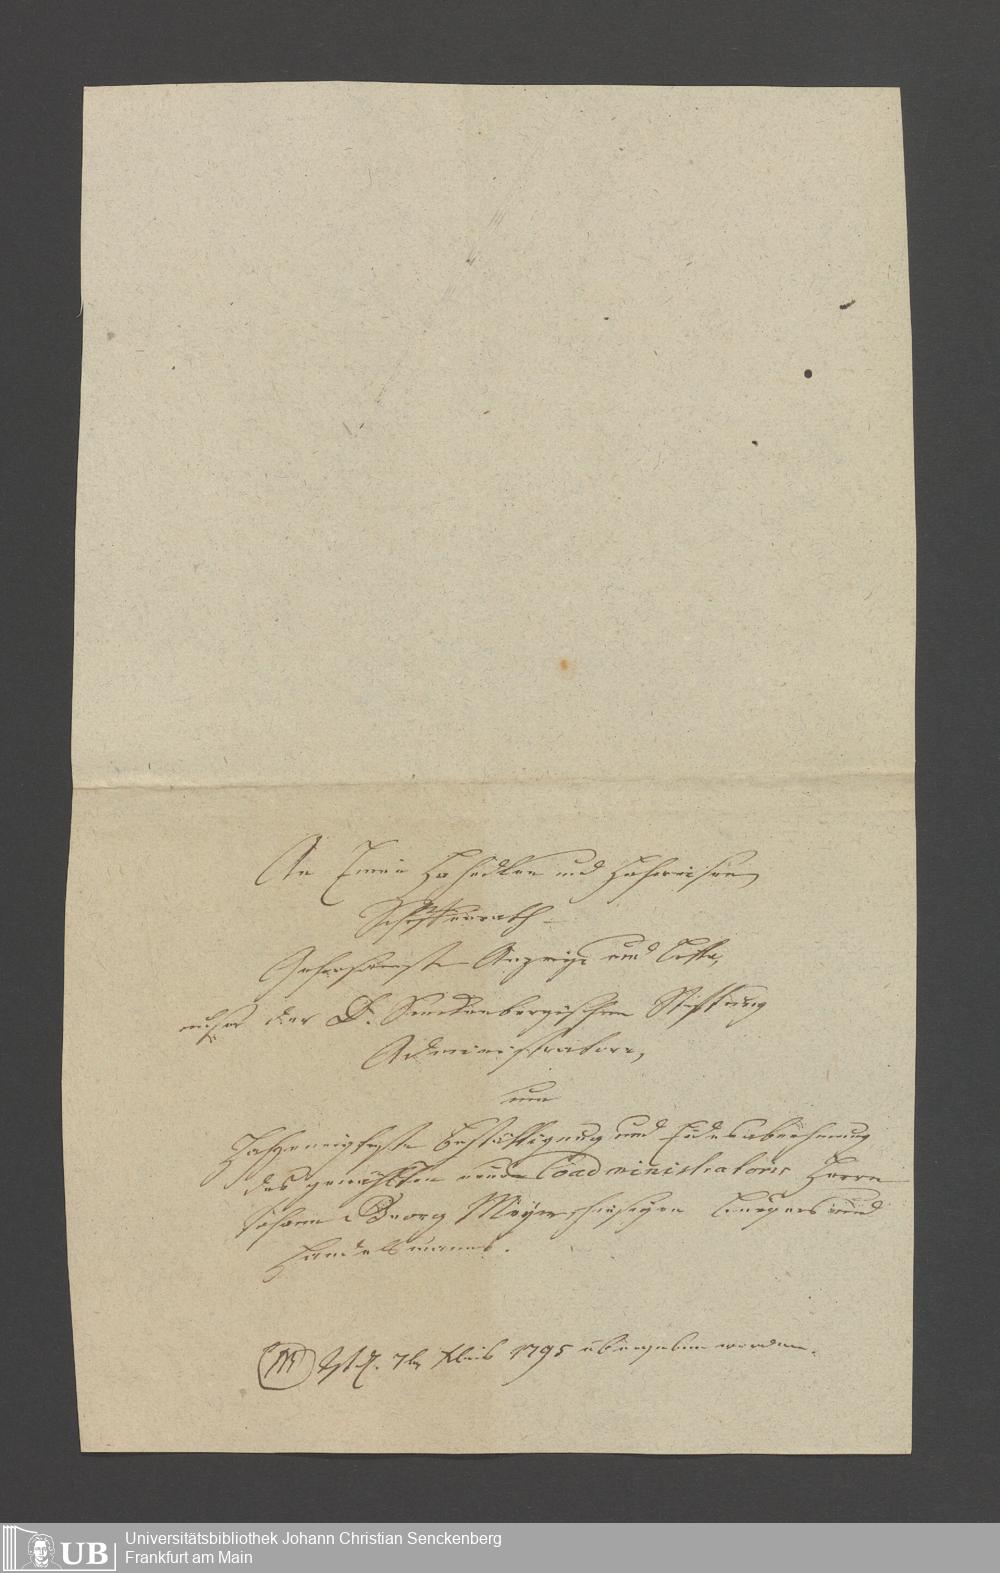 An Einen Hochedlen und Hochweisen
Schöffenrath
Gehorsamste Anzeige und Bitte,
der D. Senckenbergischen Stiftung
Administratorn,
um
Hochgeneigteste Bestättigung und Eidesabnehmung
des gewählten neuen Coadministratoris Herrn
Johann Georg Meyer hiesigen Burgers und
Handelsmanns.
Ist d. 1795 übergeben worden.
Universitätsbibliothek Johann Christian Senckenberg
Frankfurt am Main
UB